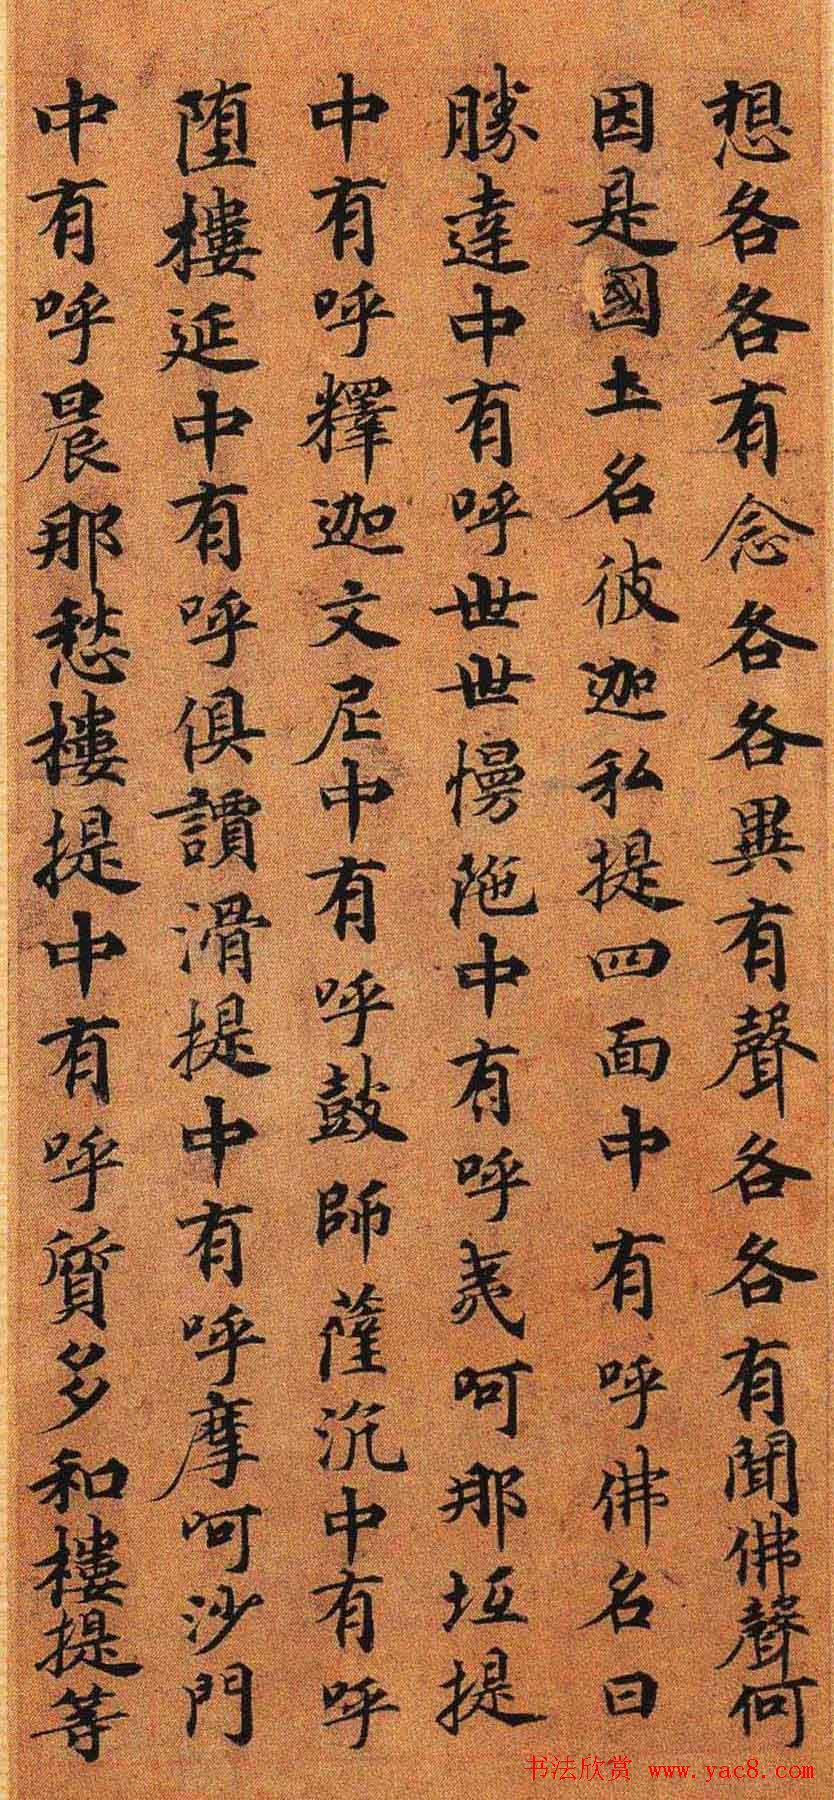 想各各有念各各異有聲各各有聞佛聲何
因是國土名彼迦私提四面中有呼佛名曰
勝達中有呼世世慢陁中有呼夷呵那坻提
中有呼釋迦文尼中有呼鼓師薩沉中有呼
墮樓延中有呼俱譚滑提中有呼摩呵沙門
中有呼晨那愁樓提中有呼質多和樓提等
书法欣赏 www.yac8.com